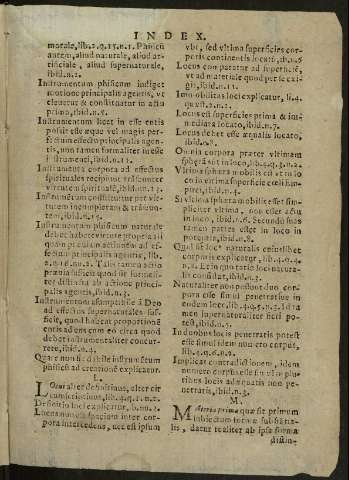 INDEX.
morale, lib.2.q.15.n.1. Phisicũ
autem, aliud naturale, aliud ar-
tificiale, aliud supernaturale,
ibid.n.2.
Instrumentum phisicum indiget
motione principalis agentis, vt
eleuetur & constituatur in actu
primo, ibid.n.8.
Instrumentum licet in esse entis
possit esse æque vel magis per-
fectum effectu principalis agen-
tis, non tamen formaliter in esse
instrumenti, ibid.n.12.
Instrumenta corporea ad effectus
spirituales recipiunt
virtutem spiritualẽ, ibid.n.13.
Instrumentum constituitur per vir-
tutem incompletam &
tem, ibid.n.15.
Instrumentum phisicum naturale
debet habere virtute propria ali
quam præuiam actionem ad ef-
fectus principalis agentis, lib.
2.q.16.n.2. Talis tamen actio
præuia sufficit quod sit
distincta ab actione princi-
palis agentis, ibid.n.3.
Instrumentum assumptibile à Deo
ad effectus supernaturales suf-
ficit, quod habeat proportionẽ
entis ad ens cum eo circa quod
debet instrumentaliter concur-
rere, ibid.n.4.
Quare non sit dabile instrumentum
phisicũ ad creationẽ explicatur.
L.
Locus aliter definitiuus, alter cir
cumscriptiuus, lib.4.q.1.n.1.
Definitio loci explicatur, ibi.nu.2.
Locus non est spatium inter cor-
pora intercedens, nec est ipsum
vbi, sed vltima superficies cor-
poris continentis locatũ, ibi.n.6
Locus comparatur ad superficiẽ,
vt ad materiale quod per se exi-
git, ibid.n.11.
Immobilitas loci explicatur, li.4.
quæst.2.n.2.
Locus est superficies prima & im-
mediata locato, ibid.n.7.
Locus debet esse æqualis locato,
ibid.n.8.
Omnia corpora præter vltimam
sphærã sũt in loco, lib.4.q.3.n.2.
Vltima sphæra mobilis est in lo-
co extrinseca superficie cœli
pirei, ibid.n.4.
Si vltima sphæra mobilis esset sim-
pliciter vltima, non esset actu
in loco, ibid.n.6. Secundũ suas
tamen partes esset in loco in
potentia, ibid.n.8.
Quid sit locus naturalis cuiuslibet
corporis explicatur, lib.4.q.4.
n.2. Et in quo ratio loci natura-
lis consistat, ibid.n.3.
Naturaliter non possunt duo cor-
pora esse simul penetratiue in
eodem loco, lib.4.q.5.n.3. Id ta
men supernaturaliter fieri po-
test, ibid.n.7.
In duobus locis penetratis potest
esse simul idem numero corpus,
lib.4.q.6.n.2.
Implicat contradictionem, idem
numero corpus esse simul in plu-
ribus locis adæquatis non pe-
netratis, ibid.n.3.
M.
Materia prima quæ sit primum
subiectum formæ substãtia-
lis, datur realiter ab ipsa forma
distin-